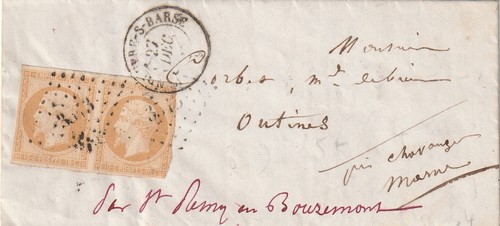 S-BARSE
27
DEC.
Monsieur
Corbet, md
Outines
près Chavange
Marne
Par St Remy en Bouzemont